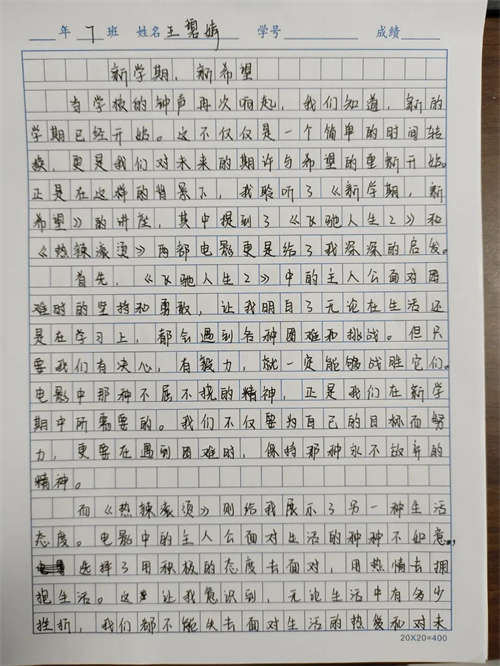 年 7 班 姓名 王碧婧 学号 成绩
新学期，新希望
当学校的钟声再次响起，我们知道，新的
学期已经开始。这不仅仅是一个简单的时间转
换，更是我们对未来的期许与希望的重新开始。
正是在这样的背景下，我聆听了《新学期，新
希望》的讲座，其中提到了《飞驰人生2》和
《热辣滚烫》两部电影更是给了我深深的启发。
首先，《飞驰人生2》中的主人公面对困
难时的坚持和勇敢，让我明白了无论在生活还
是在学习上，都会遇到各种困难和挑战。但只
要我们有决心，有毅力，就一定能够战胜它们。
电影中那种不屈不挠的精神，正是我们在新学
期中所需要的。我们不仅要为自己的目标而努
力，更要在遇到困难时，保持那种永不放弃的
精神。
而《热辣滚烫》则给我展示了另一种生活
态度。电影中的主人公面对生活的种种不如意，
选择了用积极的态度去面对，用热情去拥
抱生活。这让我意识到，无论生活中有多少
挫折，我们都不能失去面对生活的热爱和对未
20X20=400